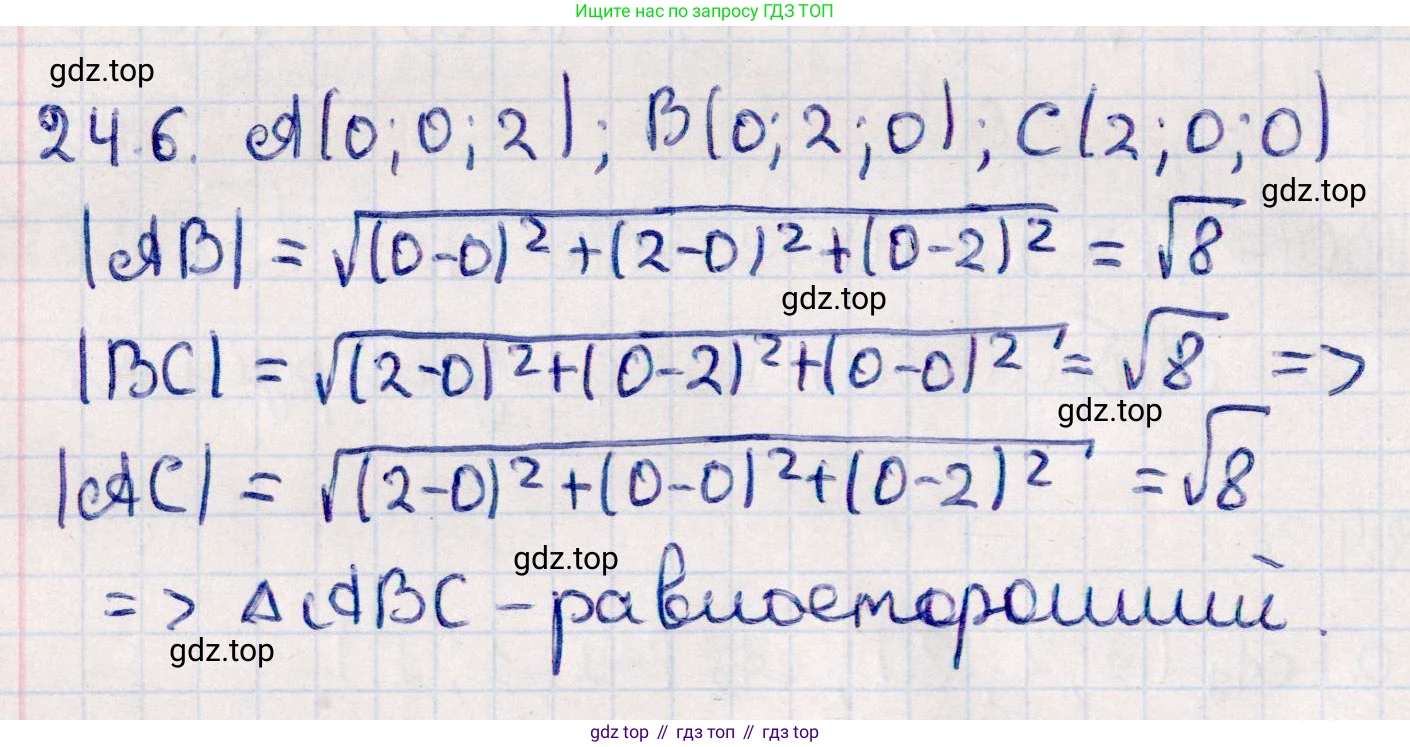 Ищите нас по запросу ГДЗ ТОП
gdz.top
24.6. A(0; 0; 2); B(0; 2; 0); C(2; 0; 0)
gdz.top
|AB| = √(0-0)² + (2-0)² + (0-2)² = √8
gdz.top
|BC| = √(2-0)² + (0-2)² + (0-0)² = √8 =>
gdz.top
|AC| = √(2-0)² + (0-0)² + (0-2)² = √8
gdz.top
=> △ABC - равносторонний.
gdz.top
gdz top // гдз топ // гдз top